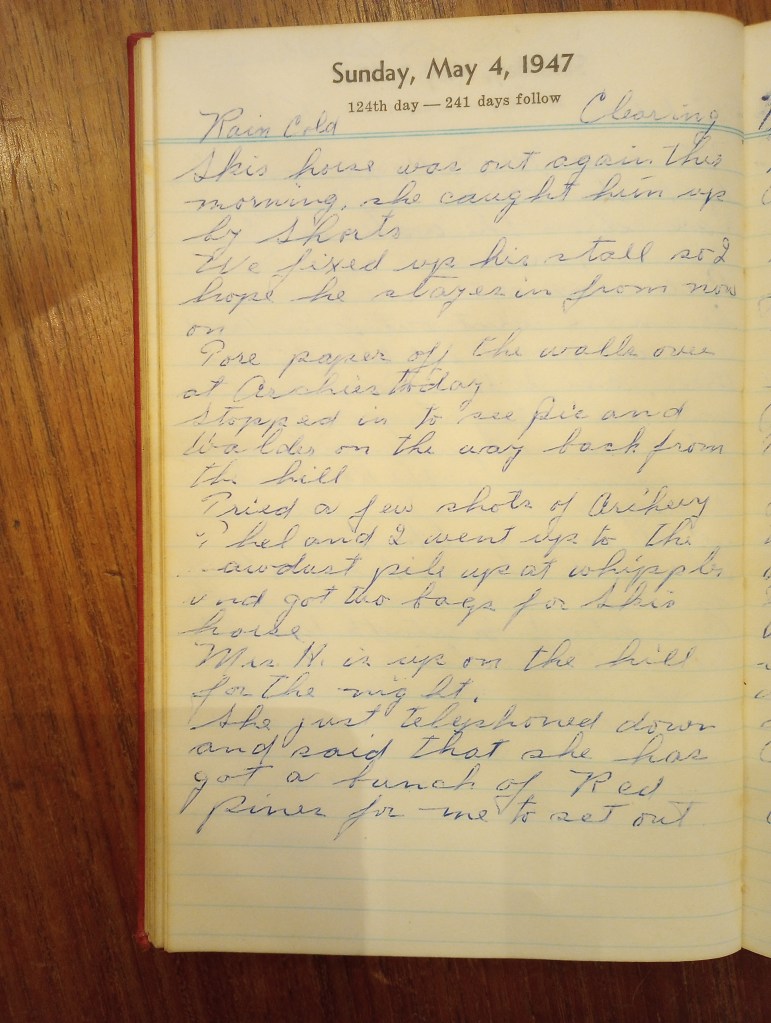 Sunday, May 4, 1947
124th day — 241 days follow
Rain Cold Clearing
Skis horse was out again this
morning, she caught him up
by Shorts
We fixed up his stall so I
hope he stayes in from now
on
Tore paper off the walls over
at Archies today
Stopped in to see Pic and
Waldo on the way back from
the hill
Tried a few shots of Archery
and I went up to the
pile up at whipples
and got two bags for Skis
horse
Mrs H. is up on the hill
for the night.
She just telephoned down
and said that she has
got a bunch of Red
pines for me to set out